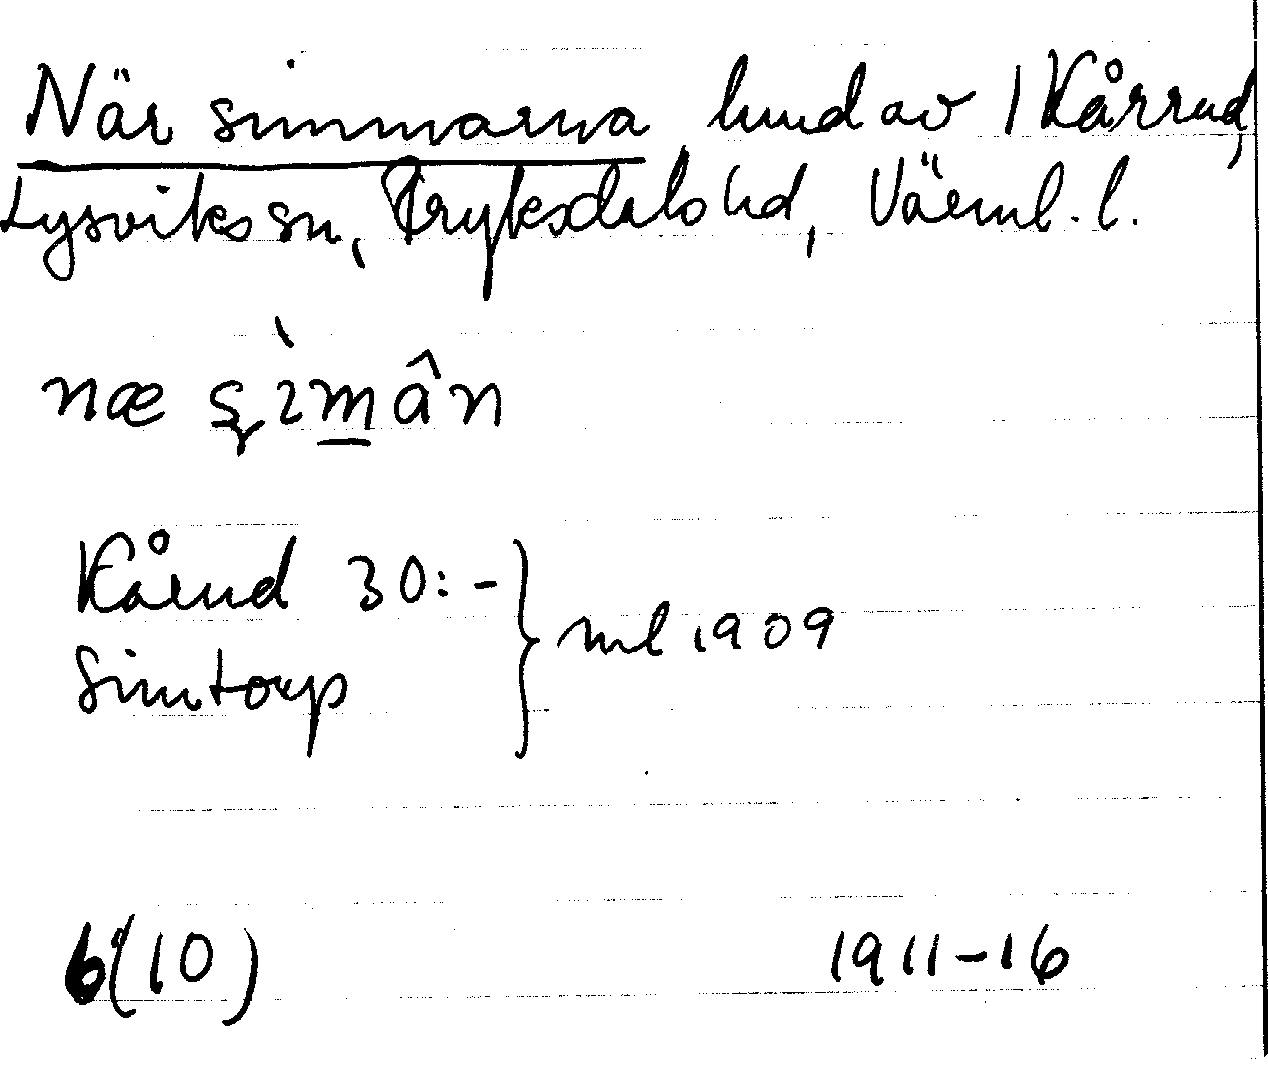 När simmarna hmd av 1 Kårrud,
Lysviks sn, Fryksdals hd, Värml. l.
næ şìmân
Kårud 30:- } ml 1909
Simtorp
6(10) 1911-16